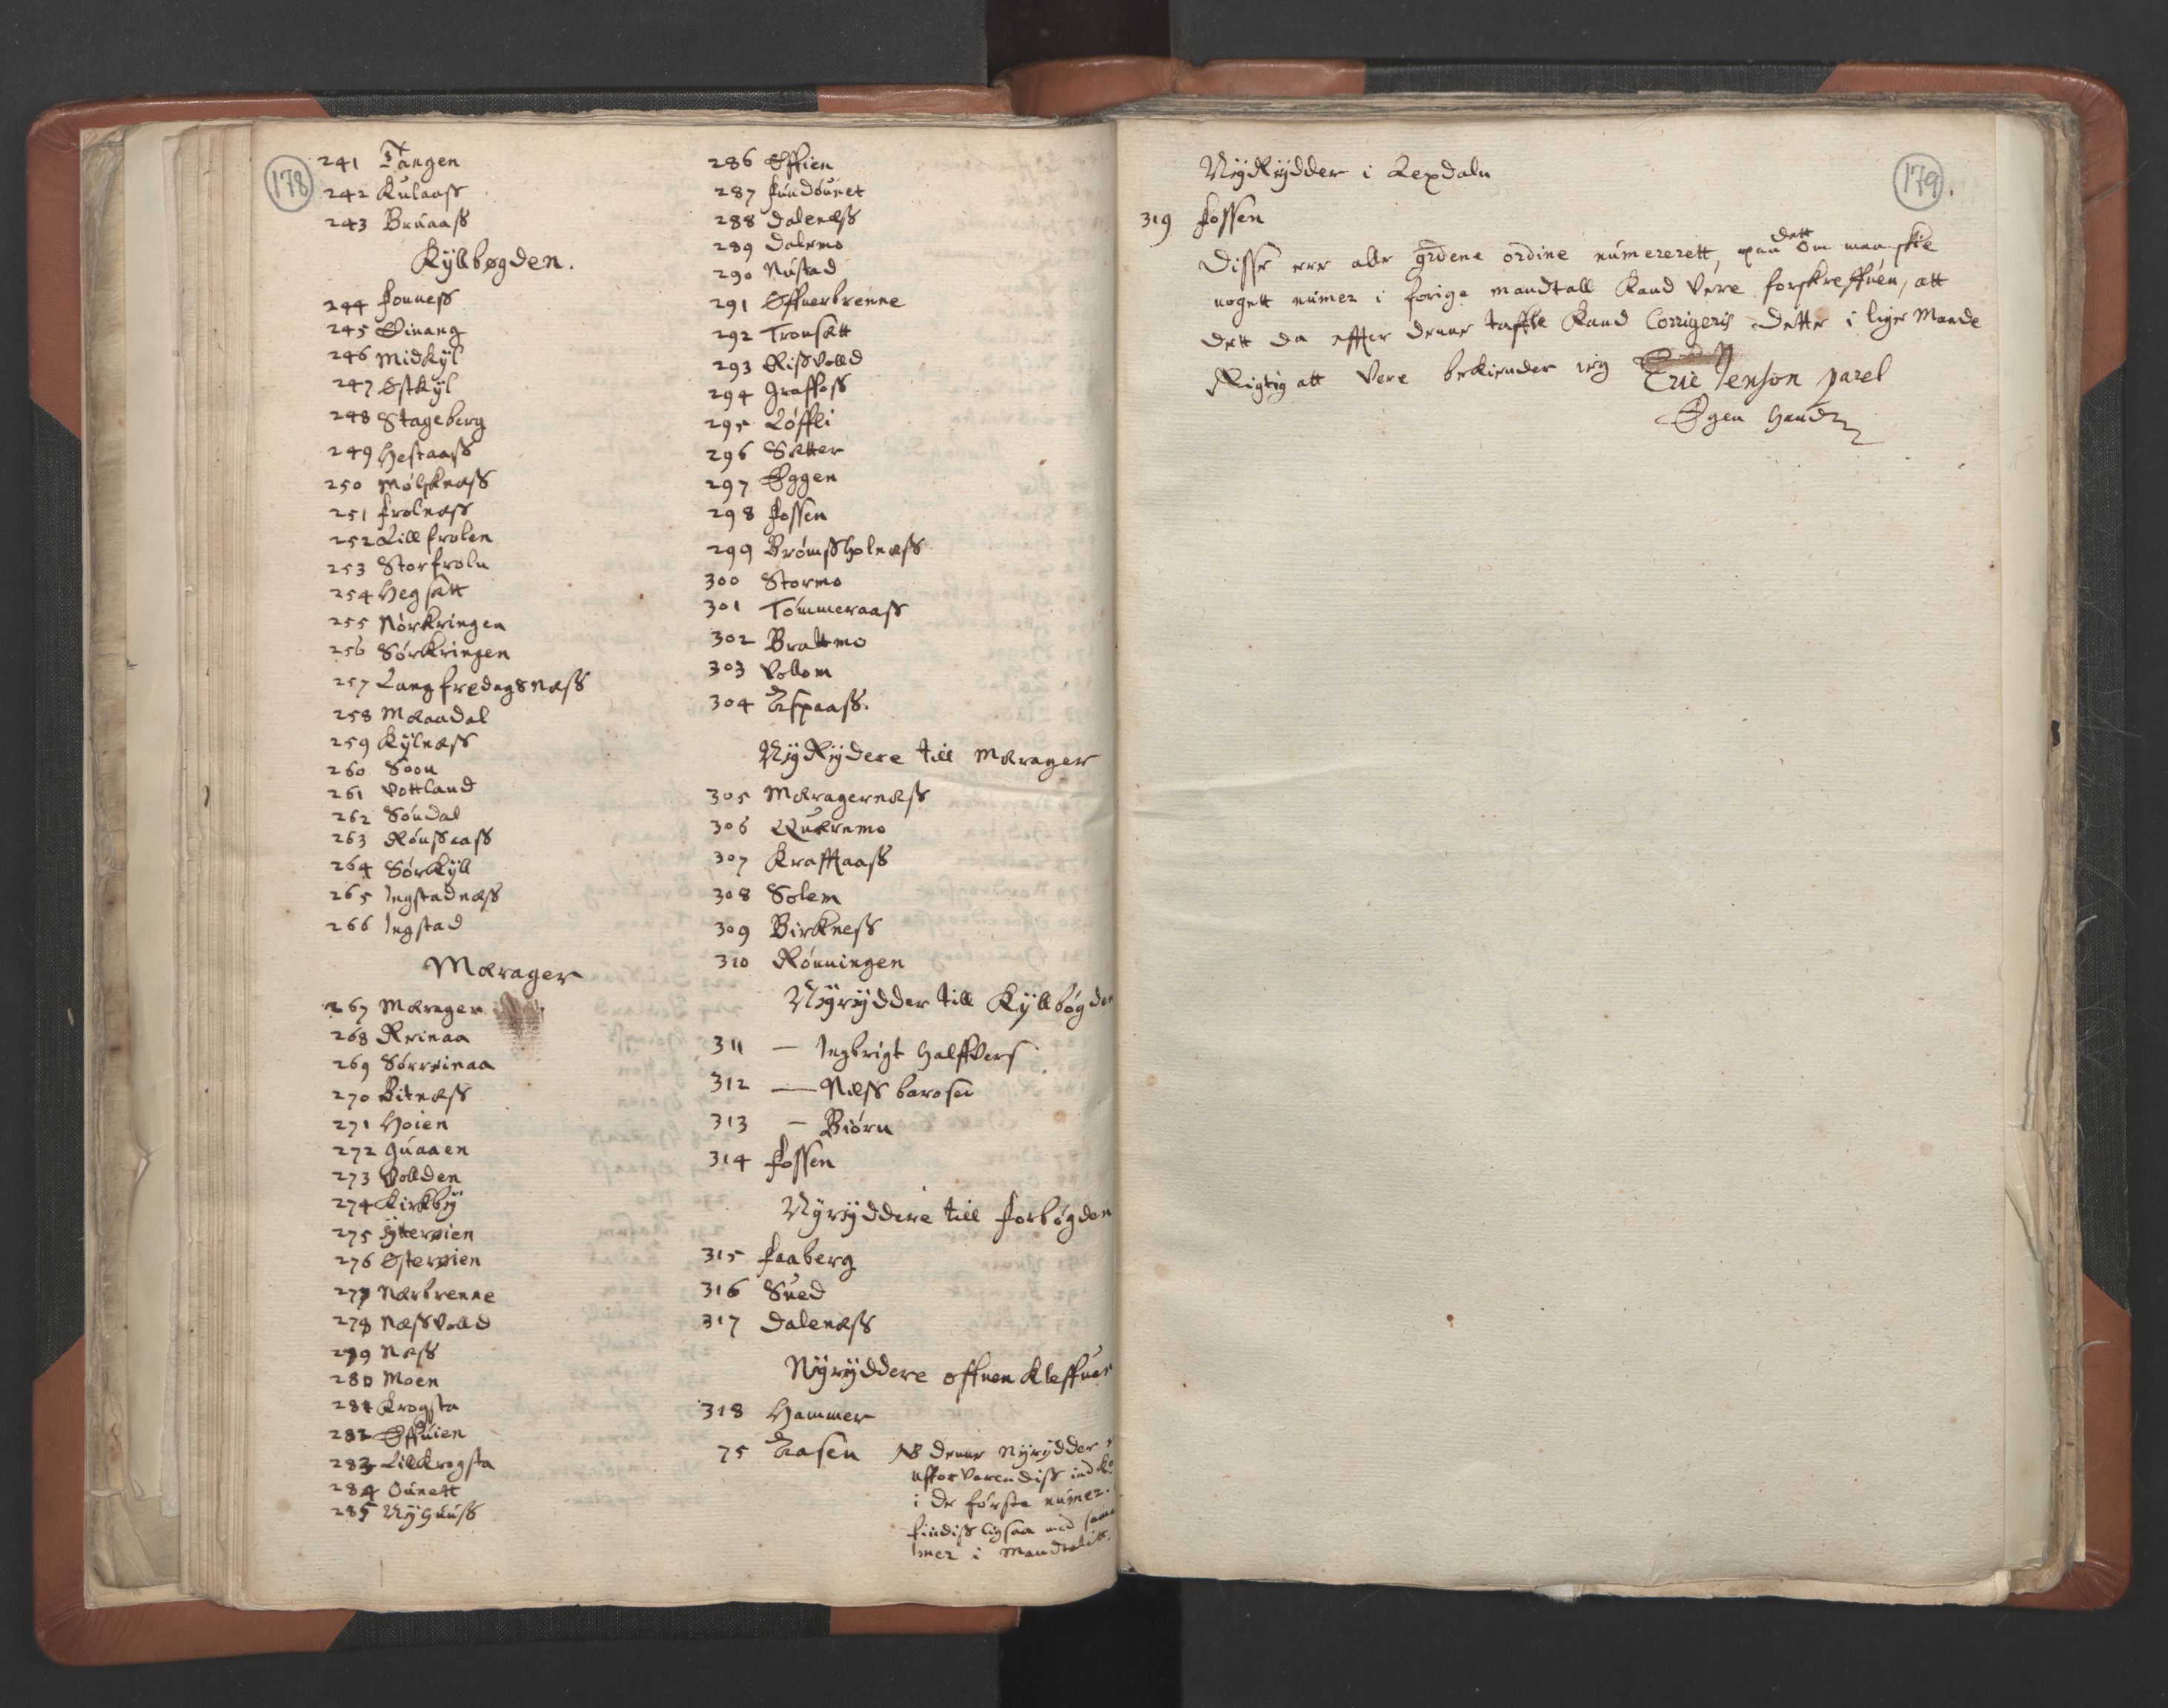 178
241 Tangen
242 Kulaass
243 Bruaass
Kyllbøgden.
244 Fonness
245 Øinang
246 Midkyl
247 Østkyl
248 Stageberg
249 Hestaass
250 Mølsknæss
251 Frolnæss
252 Lillfrolen
253 Storfroln
254 Hegsætt
255 Nørkringen
256 Sørkringen
257 Langfredagsnæss
258 Mæaadal
259 Kylnæss
260 Soon
261 Vottland
262 Søndal
263 Rønssaass
264 Sørkyll
265 Ingstadnæss
266 Ingstad
Mærager
267 Mærager
268 Reinaa
269 Sørreinaa
270 Bitnæss
271 Hoien
272 Guaaen
273 Vollden
274 Kirkby
275 Ytterøien
276 Østerøien
277 Nærbrenne
278 Næssvolld
279 Næss
280 Moen
281 Krogsta
282 Effuien
283 Lillkrogsta
284 Ounett
285 Nyhuuss
286 Effien
287 Fundounet
288 Dalenæss
289 Dalemo
290 Nustad
291 Øffuerbrenne
292 Tronsætt
293 Rissvolld
294 Graffoss
295 Løffli
296 Sætter
297 Eggen
298 Fossen
299 Brømssholnæss
300 Stormo
301 Tømmeraass
302 Brattmo
303 Vollom
304 Aspaass.
NyRydere till Mærager
305 Mæragernæss
306 Quernmo
307 Krafftaass
308 Solem
309 Birkness
310 Rønningen
Nyrydder till Kyllbøgden
311 — Ingbrigt Halffvers
312 — Næss
313 — Biørn
314 Fossen
Nyryddere till Forbøgden
315 Faaberg
316 Sued
317 Dalenæss
Nyryddere offuen Kleffuen
318 Hammer
75 Aasen NB denne Nyrydder
uforvarendiss ind
i de første numer.
findiss ligsaa med
i Mandtalitt.
179.
NyRydder i Lexdaln
319 Fossen
Disse ere alle ordine numererett, paa dett om maaskie
nogett numer i forige mandtall kand vere forskreffuen, att
dett da effter denne taffle kand Corrigeris dette i lige Maade
Rigtig att vere bekiender ieg Eric Jenson parel
Egen Haand